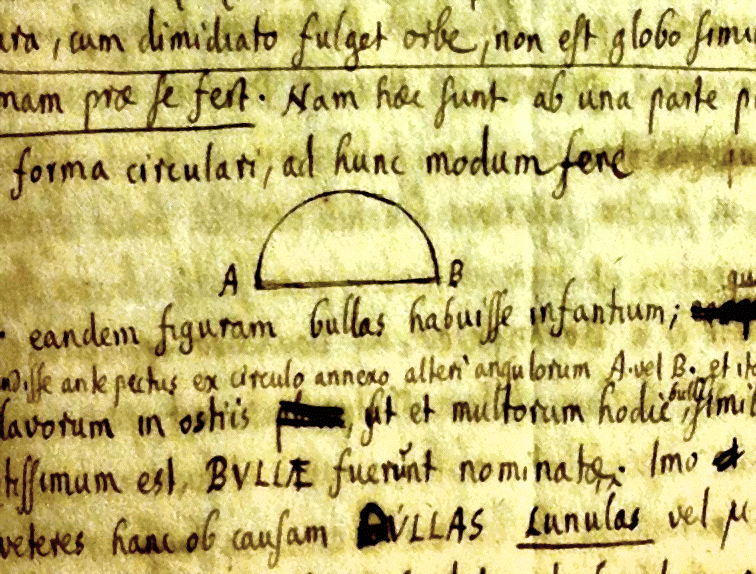 cum dimidiato fulget orbe, non est globo
præ se fert. Nam hæc sunt ab una parte
forma circulari, ad hunc modum fere
A B
eandem figuram bullas habuisse infantium;
ante pectus ex circulo annexo alteri angulorum A. vel B. et
in ostiis, ut et multorum hodie
est, BVLLÆ fuerunt nominatæ. Imo
veteres hanc ob causam BVLLAS Lunulas vel